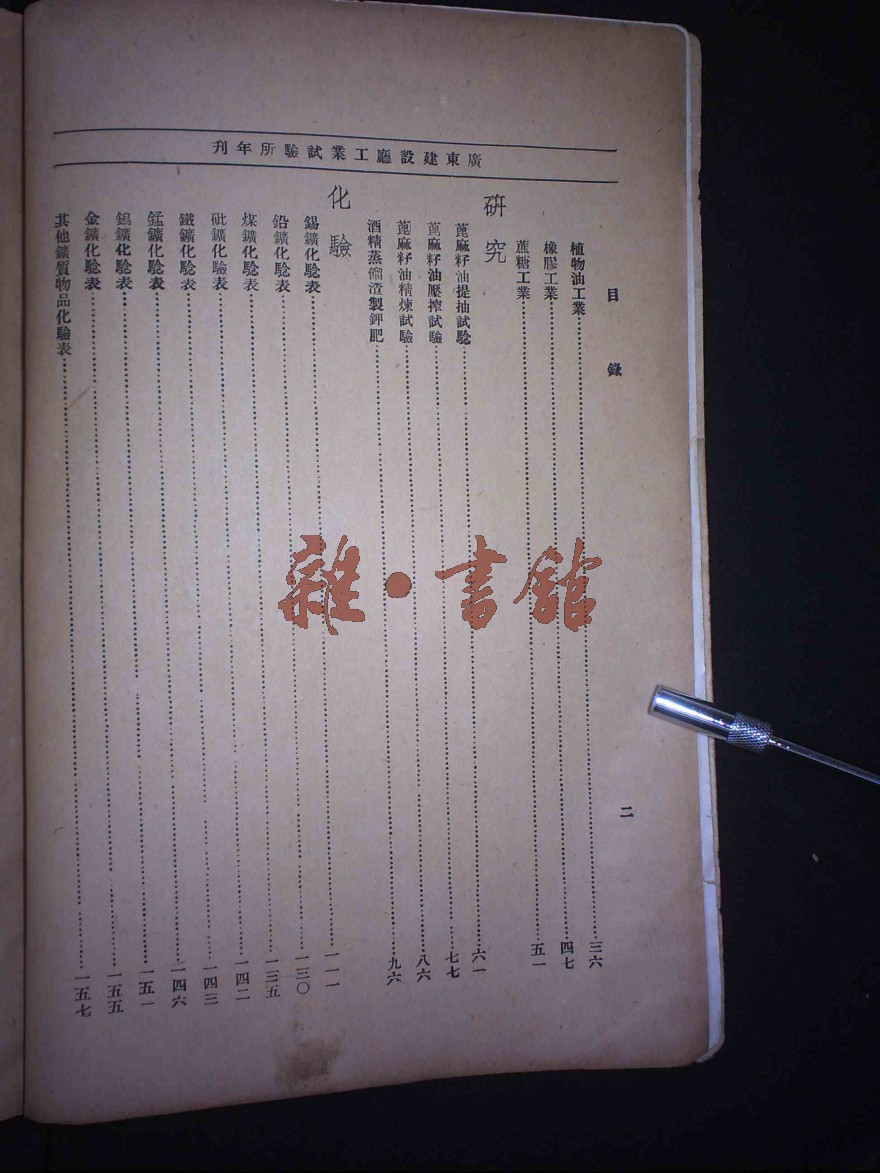 廣東建設廳工業試驗所年刊
目錄 二
植物油工業……三六
橡膠工業……四七
蔗糖工業……五一
研究
蓖麻籽油提抽試驗……六一
蓖麻籽油壓搾試驗……七七
蓖麻籽油精煉試驗……八六
酒精蒸餾渣製鉀肥……九六
化驗
錫鑛化驗表……一一一
鉛鑛化驗表……一三〇
煤鑛化驗表……一三五
砒鑛化驗表……一四二
鐵鑛化驗表……一四三
錳鑛化驗表……一四六
鎢鑛化驗表……一五一
金鑛化驗表……一五五
其他鑛質物品化驗表……一五七
雜·書館